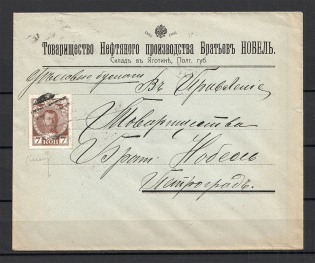 Товарищество Нефтяного производства Братьевъ НОБЕЛЬ.
Складъ въ Яготинѣ, Полт. губ.
Въ Правленіе
Товарищества
Брат. Нобель
Петроградъ.
7 7